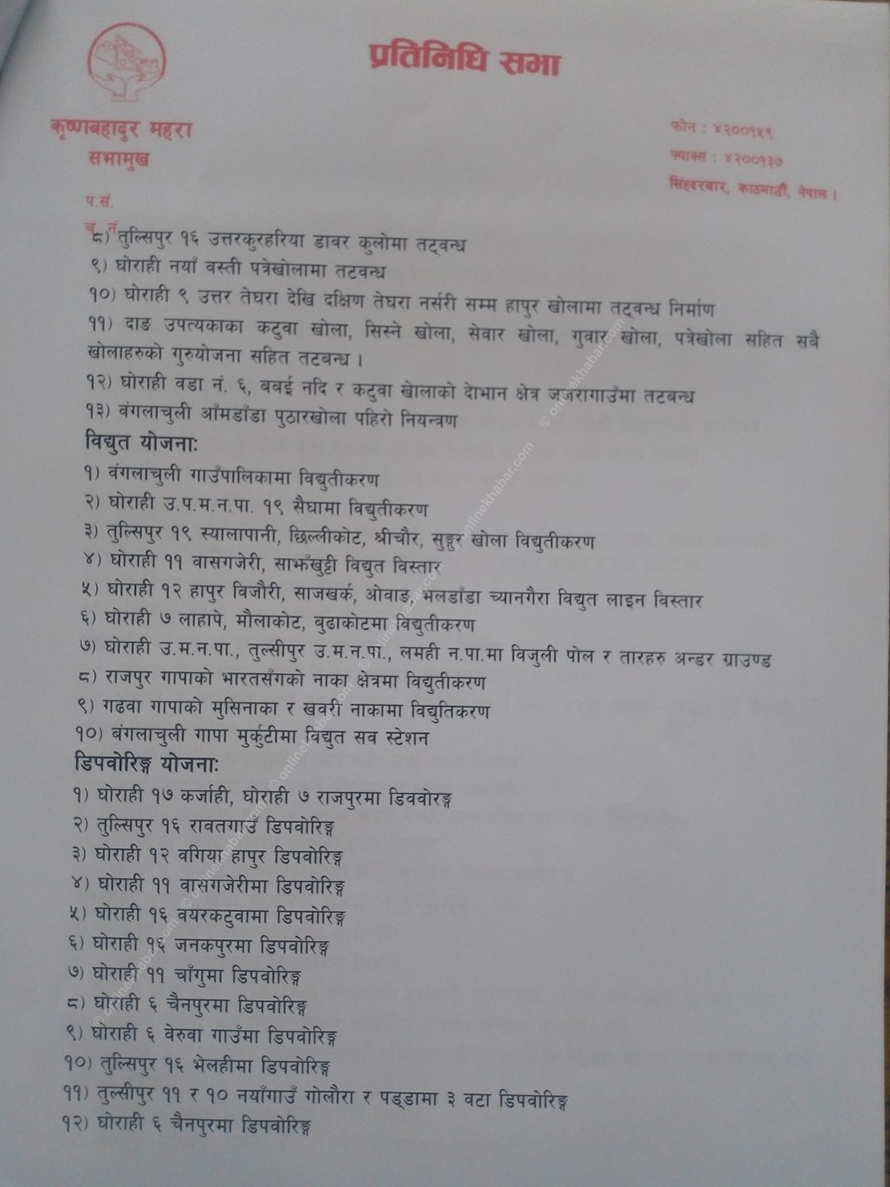 प्रतिनिधि सभा
कृष्णबहादुर महरा
सभामुख
फोन : ४२००१५९
फ्याक्स : ४२००१३७
सिंहदरवार, काठमाडौं, नेपाल ।
प.सं.
च. नं.
८) तुल्सिपुर १६ उत्तरकुरहरिया डावर कुलोमा तट्वन्ध
९) घोराही नयाँ वस्ती पत्रेखोलामा तटवन्ध
१०) घोराही ९ उत्तर तेघरा देखि दक्षिण तेघरा नर्सरी सम्म हापुर खोलामा तट्वन्ध निर्माण
११) दाङ उपत्यकाका कटुवा खोला, सिस्ने खोला, सेवार खोला, गुवार खोला, पत्रेखोला सहित सबै
खोलाहरुको गुरुयोजना सहित तटबन्ध ।
१२) घोराही वडा नं. ६, बबई नदि र कटुवा खेालाको देाभान क्षेत्र जजरागाउँमा तटबन्ध
१३) वंगलाचुली आँमडाँडा पुठारखोला पहिरो नियन्त्रण
विद्युत योजनाः
१) वंगलाचुली गाउँपालिकामा विद्युतीकरण
२) घोराही उ.प.म.न.पा. १९ सैघामा विद्युतीकरण
३) तुल्सिपुर १९ स्यालापानी, छिल्लीकोट, श्रीचौर, सुङ्गुर खोला विद्युतीकरण
४) घोराही ११ वासगजेरी, साझँखुट्टी विद्युत विस्तार
५) घोराही १२ हापुर विजौरी, साजखर्क, ओवाङ, भलडाँडा च्यानगैरा विद्युत लाइन विस्तार
६) घोराही ७ लाहापे, मौलाकोट, बुढाकोटमा विद्युतीकरण
७) घोराही उ.म.न.पा., तुल्सीपुर उ.म.न.पा., लमही न.पा.मा विजुली पोल र तारहरु अन्डर ग्राउण्ड
८) राजपुर गापाको भारतसँगको नाका क्षेत्रमा विद्युतीकरण
९) गढवा गापाको मुसिनाका र खवरी नाकामा विद्युतिकरण
१०) बंगलाचुली गापा मुर्कुटीमा विद्युत सव स्टेशन
डिपवोरिङ्ग योजनाः
१) घोराही १७ कर्जाही, घोराही ७ राजपुरमा डिववोरङ्ग
२) तुल्सिपुर १६ रावतगाउँ डिपवोरिङ्ग
३) घोराही १२ वगिया हापुर डिपवोरिङ्ग
४) घोराही ११ वासगजेरीमा डिपवोरिङ्ग
५) घोराही १६ वयरकटुवामा डिपवोरिङ्ग
६) घोराही १६ जनकपुरमा डिपवोरिङ्ग
७) घोराही ११ चाँगुमा डिपवोरिङ्ग
८) घोराही ६ चैनपुरमा डिपवोरिङ्ग
९) घोराही ६ वेरुवा गाउँमा डिपवोरिङ्ग
१०) तुल्सिपुर १६ भेलहीमा डिपवोरिङ्ग
११) तुल्सीपुर ११ र १० नयाँगाउँ गोलौरा र पड्डामा ३ वटा डिपवोरिङ्ग
१२) घोराही ६ चैनपुरमा डिपवोरिङ्ग
© onlinekhabar.com